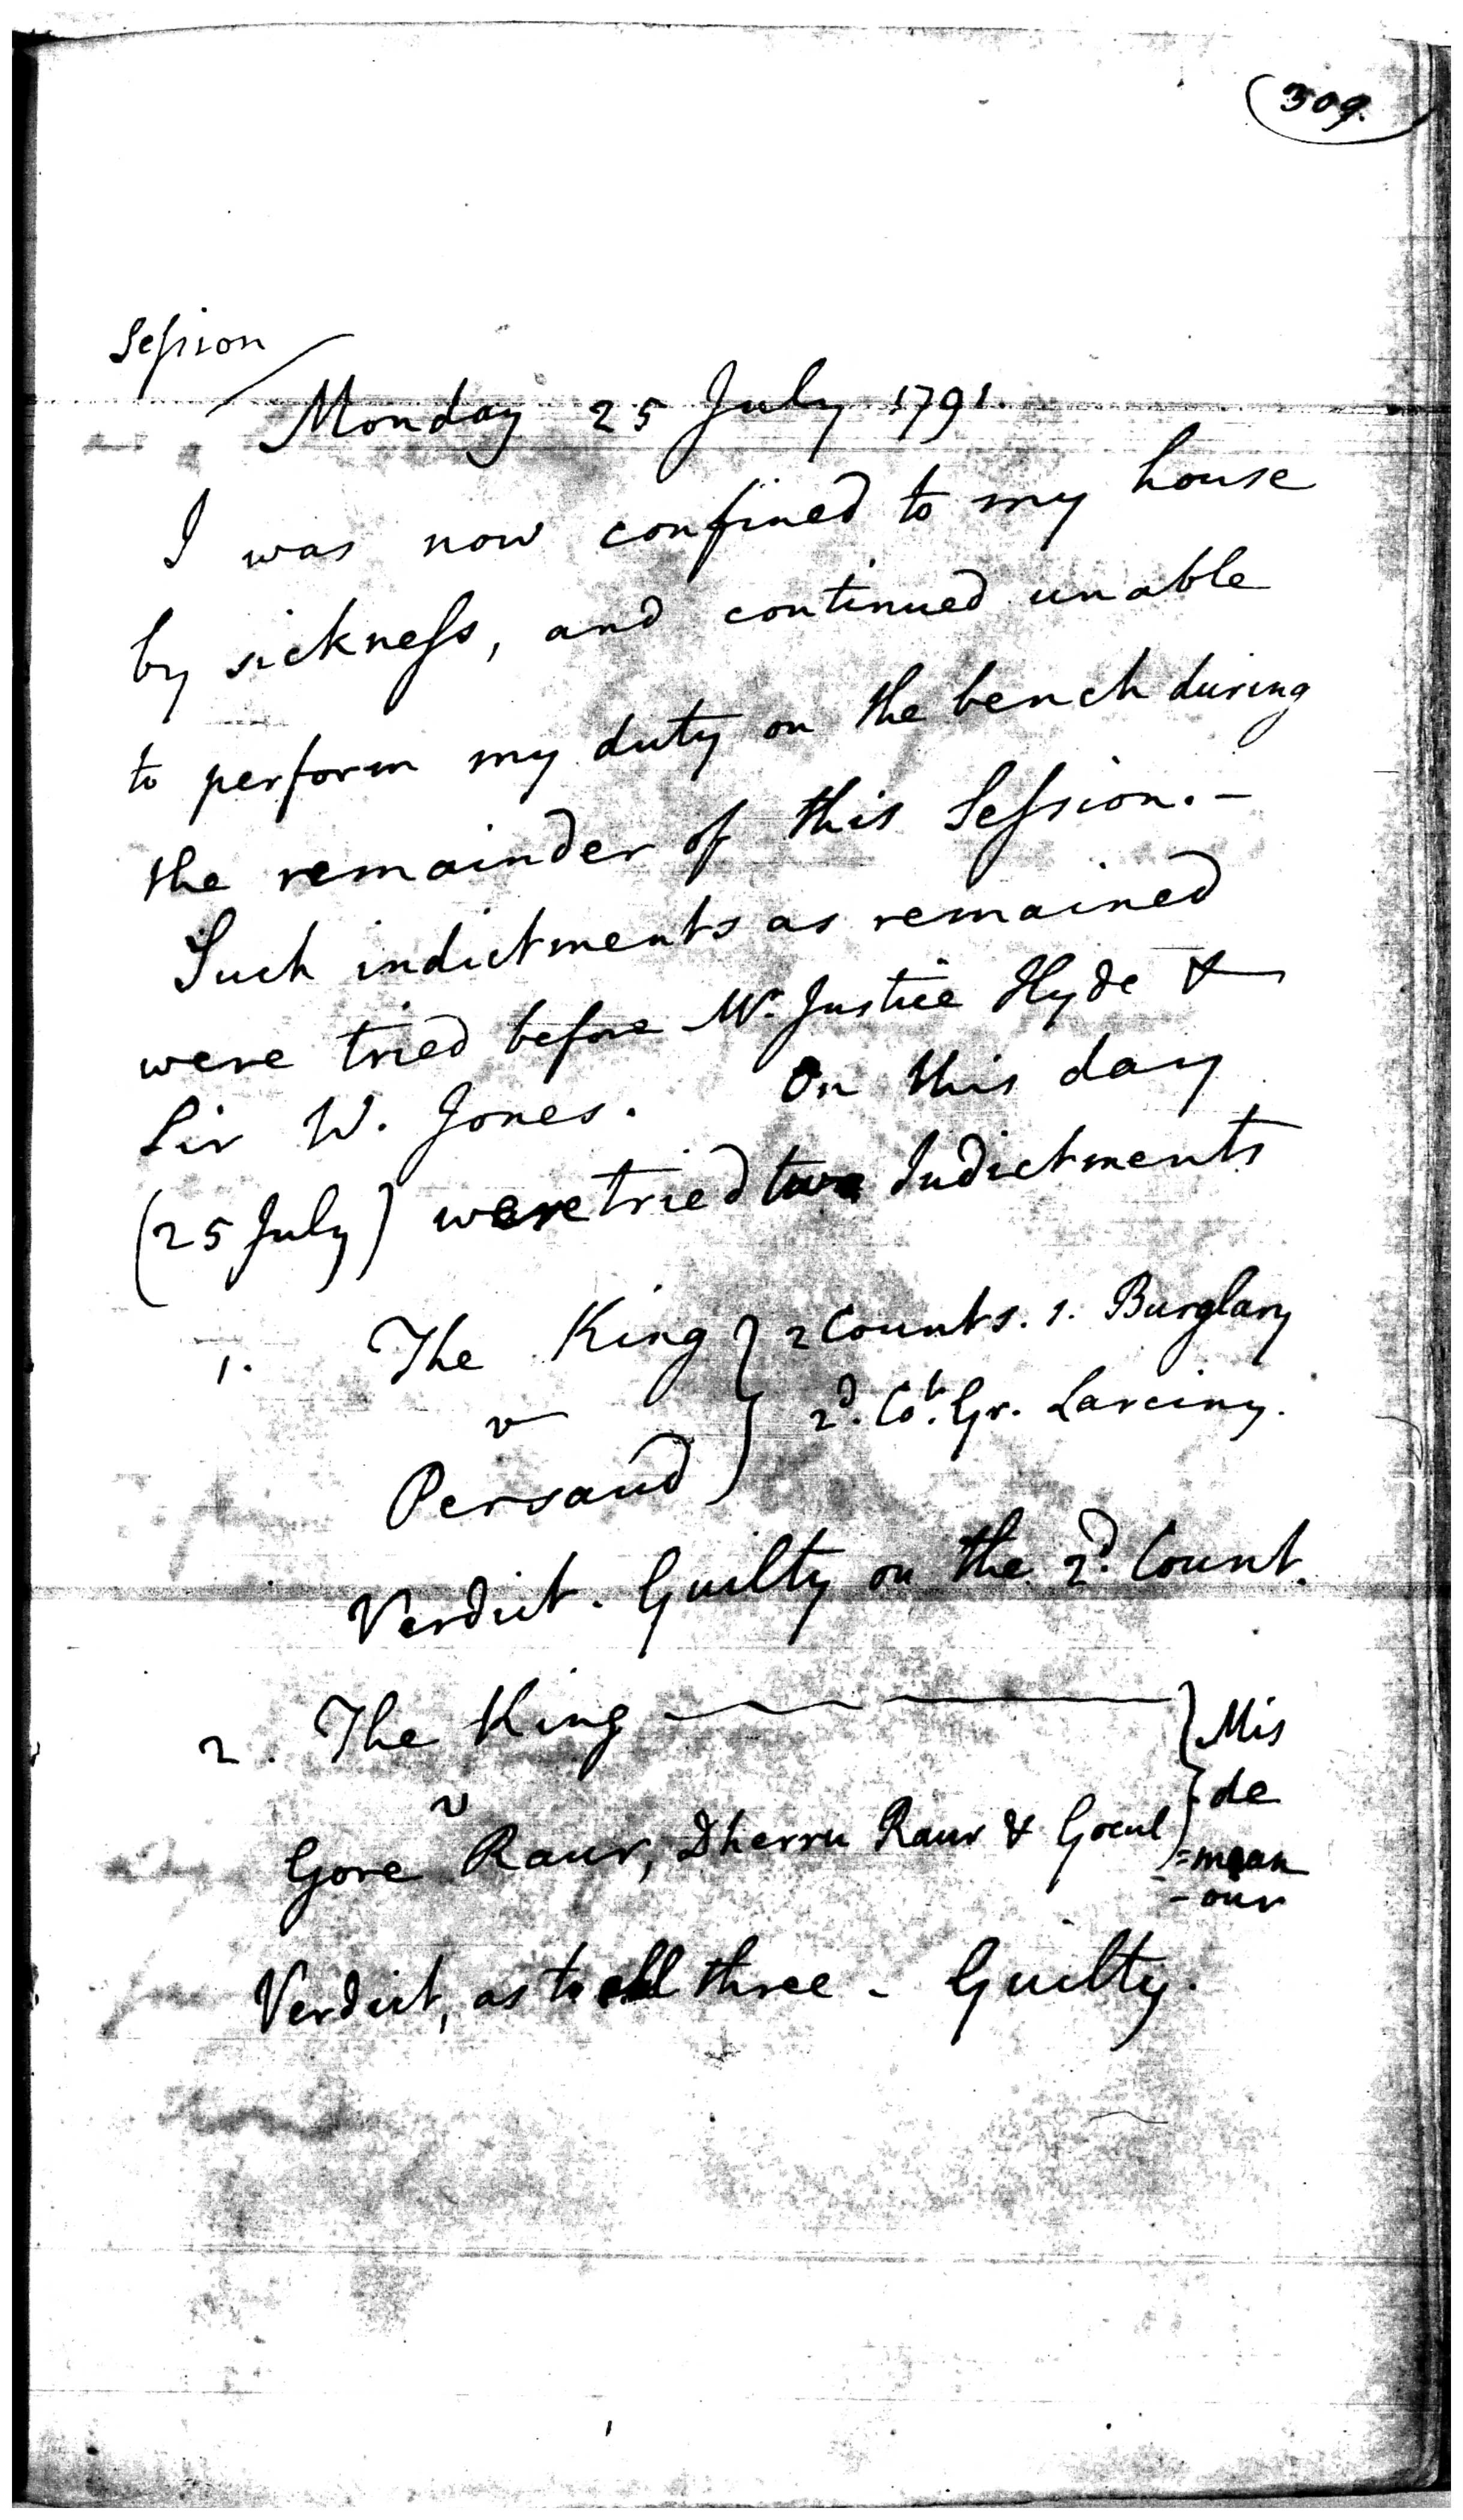 309.
Session
Monday 25 July 1791.
I was now confined to my house
by sickness, and continued unable
to perform my duty on the bench during
the remainder of this Session. -
Such indictments as remained
were tried before Mr. Justice Hyde &
Sir W. Jones. On this day
(25 July) were tried two Indictments
1. The King } 2 Counts. 1. Burglary
v } 2d. Ct. Gr. Larciny.
Persaud
Verdict. Guilty on the 2d. Count.
2. The King } Mis
v } de
Gore Raur, Dherru Raur & Gocul } =mean
-our
Verdict, as to all three - Guilty.